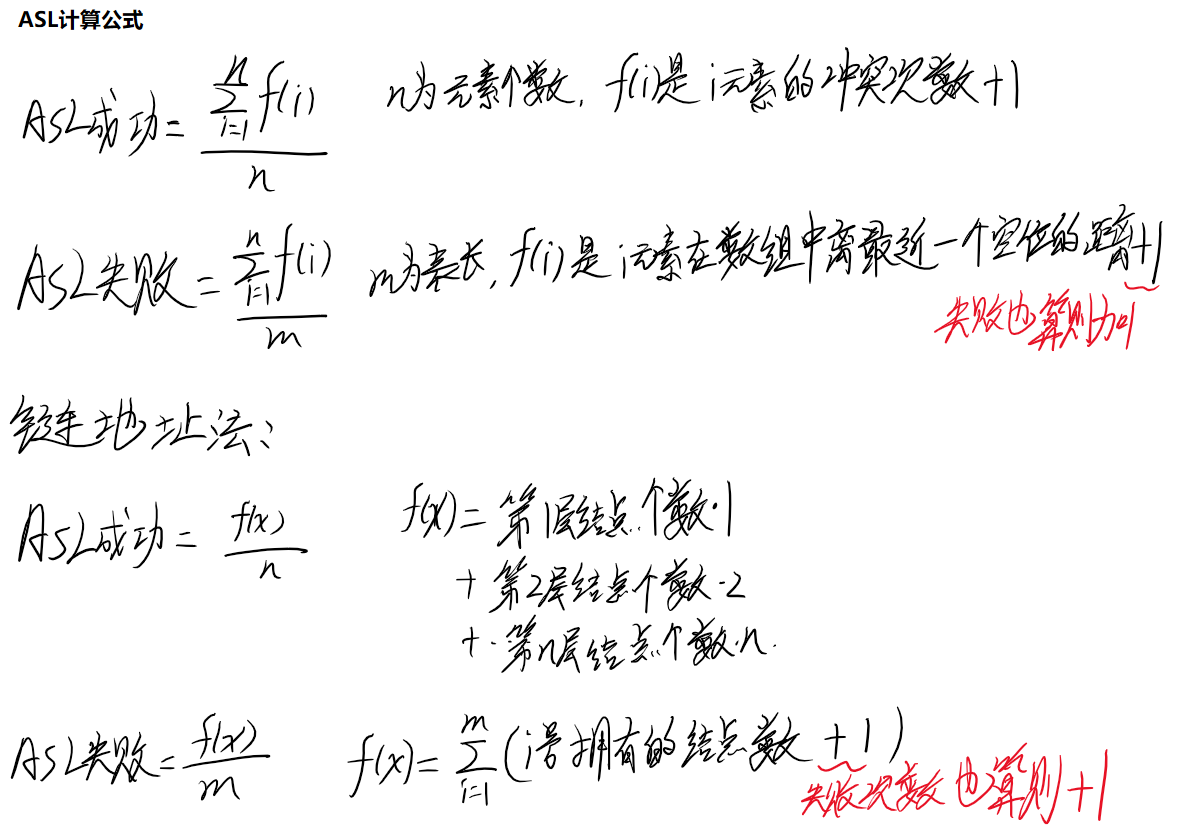 ASL计算公式
ASL成功 = \frac{\sum_{i=1}^{n} f(i)}{n} n为元素个数, f(i)是i元素的冲突次数+1
ASL失败 = \frac{\sum_{i=1}^{n} f(i)}{m} m为表长, f(i)是i元素在数组中离最近一个空位的距离+1
失败也算则加1
链地址法:
ASL成功 = \frac{f(x)}{n} f(x) = 第1层结点个数·1
+ 第2层结点个数·2
+·第n层结点个数·n.
ASL失败 = \frac{f(x)}{m} f(x) = \sum_{i=1}^{m} (i号拥有的结点数 + 1)
失败次数也算则+1